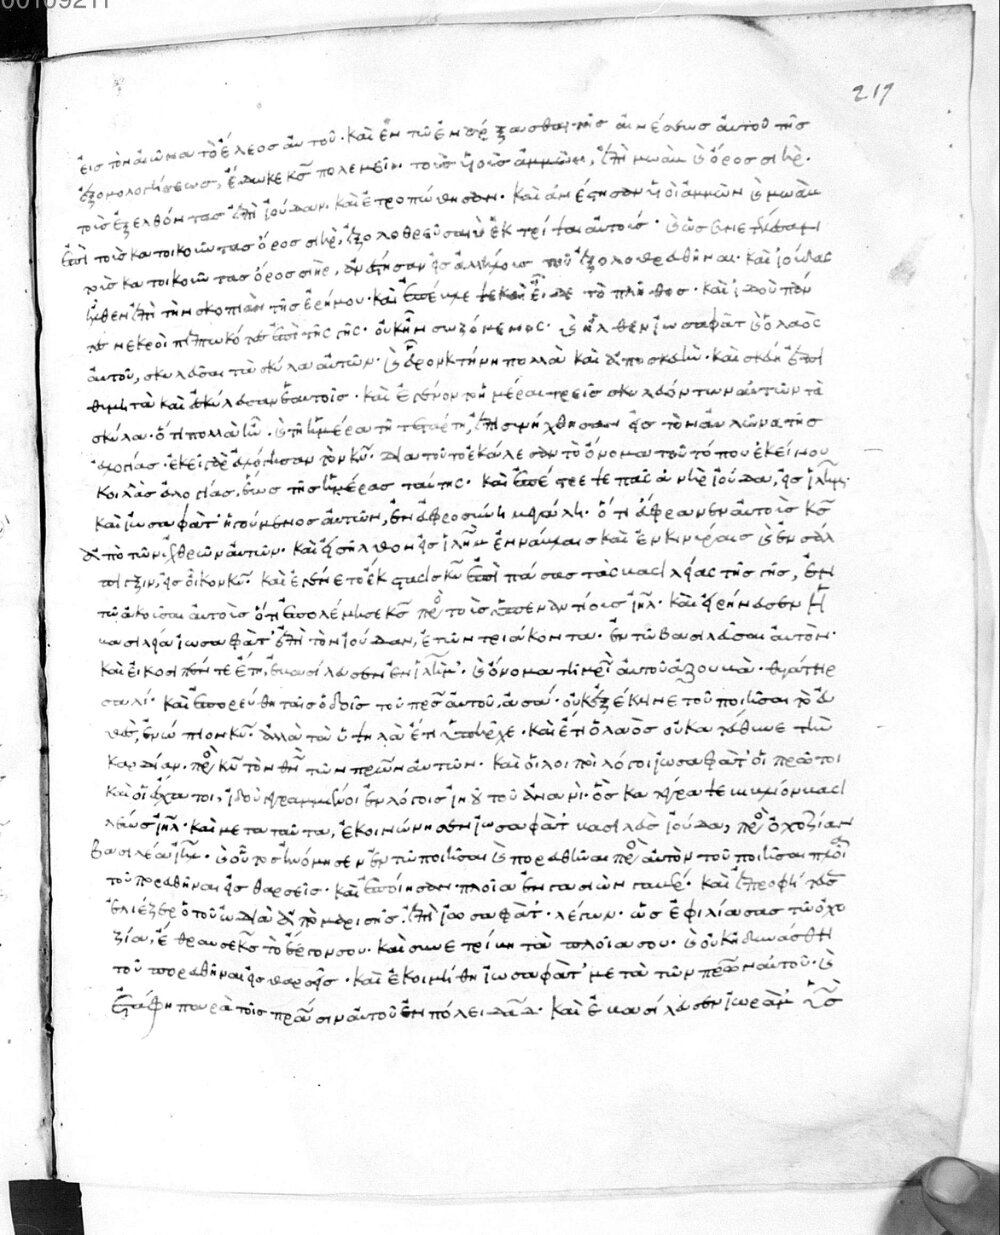 00109211
217
εἰς τὸν αἰῶνα τὸ ἔλεος αὐτοῦ· καὶ ἐν τῶ ἐνάρξασθαι τῆς αἰνέσεως αὐτοῦ τῆς
ἐξομολογήσεως, ἔδωκε κς πολεμεῖν τοὺς υἱοὺς ἀμμὼν, ἐπὶ μωὰβ καὶ ὄρος σηὶρ·
τοὺς ἐξελθόντας ἐπὶ ἰούδαν· καὶ ἐτροπώθησαν· καὶ ἀνέστησαν οἱ υἱοὶ ἀμμὼν καὶ μωὰβ
ἐπὶ τοὺς κατοικοῦντας ὄρος σηὶρ, ἐξολοθρεῦσαι καὶ ἐκτρίψαι αὐτούς· καὶ ὡς συνετέλεσαν
τοὺς κατοικοῦντας ὄρος σηὶρ, ἀνέστησαν εἰς ἀλλήλους τοῦ ἐξολοθρευθῆναι· καὶ ἰούδας
ἦλθεν ἐπὶ τὴν σκοπιὰν τῆς ἐρήμου· καὶ ἐπέβλεψε καὶ εἶδε τὸ πλῆθος· καὶ ἰδοὺ πάντες
νεκροὶ πεπτωκότες ἐπὶ τῆς γῆς· οὐκ ἦν σωζόμενος· καὶ ἦλθεν ἰωσαφὰτ καὶ ὁ λαὸς
αὐτοῦ, σκυλεῦσαι τὰ σκύλα αὐτῶν· καὶ εὗρον κτήνη πολλὰ καὶ ἀποσκευὴν· καὶ σκεύη ἐπι
θυμητὰ καὶ ἐσκύλευσαν ἑαυτοῖς· καὶ ἐγένοντο ἡμέραι τρεῖς σκυλευόντων αὐτῶν τὰ
σκύλα· ὅτι πολλὰ ἦν· καὶ τῆ ἡμέρα τῆ τετάρτη, ἐπισυνήχθησαν εἰς τὸν αὐλῶνα τῆς
εὐλογίας· ἐκεῖ γὰρ εὐλόγησαν τὸν κν· διὰ τοῦτο ἐκάλεσαν τὸ ὄνομα τοῦ τόπου ἐκείνου
κοιλὰς εὐλογίας, ἕως τῆς ἡμέρας ταύτης· καὶ ἐπέστρεψε πᾶς ἀνὴρ ἰούδα, εἰς ἱλημ·
καὶ ἰωσαφὰτ ἡγούμενος αὐτῶν, ἐν εὐφροσύνη μεγάλη· ὅτι εὔφρανεν αὐτοὺς κς
ἀπὸ τῶν ἐχθρῶν αὐτῶν· καὶ εἰσῆλθον εἰς ἱλημ ἐν νάβλαις καὶ ἐν κινύραις καὶ ἐν σάλ
πιγξιν, εἰς οἶκον κυ· καὶ ἐγένετο ἔκστασις κυ ἐπὶ πάσας τὰς βασιλείας τῆς γῆς, ἐν
τῶ ἀκοῦσαι αὐτοὺς ὅτι ἐπολέμησε κς πρὸς τοὺς ὑπεναντίους ἰηλ· καὶ εἰρήνευσεν ἡ
βασιλεία ἰωσαφὰτ ἐπὶ τὸν ἰούδαν, ἐτῶν τριάκοντα· ἐν τῶ βασιλεῦσαι αὐτὸν·
καὶ εἴκοσι πέντε ἔτη, ἐβασίλευσεν ἐν ἱλημ· καὶ ὄνομα τῆ μρὶ αὐτοῦ ἀζουβὰ· θυγάτηρ
σαλί· καὶ ἐπορεύθη ταῖς ὁδοῖς τοῦ πρς αὐτοῦ, ἀσά· οὐκ ἐξέκλινε τοῦ ποιῆσαι τὸ εὐ
θὲς, ἐνώπιον κυ· ἀλλὰ τὰ ὑψηλὰ ἔτι ὑπῆρχε· καὶ ἔτι ὁ λαὸς οὐ κατεύθυνε τὴν
καρδίαν· πρὸς κν τὸν θν τῶν πρων αὐτῶν· καὶ οἱ λοιποὶ λόγοι ἰωσαφὰτ οἱ πρῶτοι
καὶ οἱ ἔσχατοι, ἰδοὺ γεγραμμένοι ἐν λόγοις ἰηοῦ τοῦ ἀνανὶ· ὃς κατέγραψε βιβλίον βασι
λέως ἰηλ· καὶ μετὰ ταῦτα, ἐκοινώνησεν ἰωσαφὰτ βασιλεὺς ἰούδα, πρὸς ὀχοζίαν
βασιλέα ἰηλ· καὶ οὗτος ἠνόμησεν ἐν τῶ ποιῆσαι καὶ πορευθῆναι πρὸς αὐτὸν τοῦ ποιῆσαι πλοῖα
τοῦ πορευθῆναι εἰς θαρσεῖς· καὶ ἐποίησαν πλοῖα ἐν γασιὼν γαβέρ· καὶ ἐπροφήτευσεν
ἐλιέζερ ὁ τοῦ ἰωδία ἀπὸ μαρισῆς· ἐπὶ ἰωσαφὰτ· λέγων· ὡς ἐφιλίασας τῶ ὀχο
ζία, ἔθραυσε κς τὸ ἔργον σου· καὶ συνετρίβη τὰ πλοῖα σου· καὶ οὐκ ἐδυνάσθη
τοῦ πορευθῆναι εἰς θαρσεῖς· καὶ ἐκοιμήθη ἰωσαφὰτ μετὰ τῶν πρων αὐτοῦ· καὶ
ἐτάφη παρὰ τοῖς πράσιν αὐτοῦ ἐν πόλει δαδ· καὶ ἐβασίλευσεν ἰωρὰμ υἱὸς